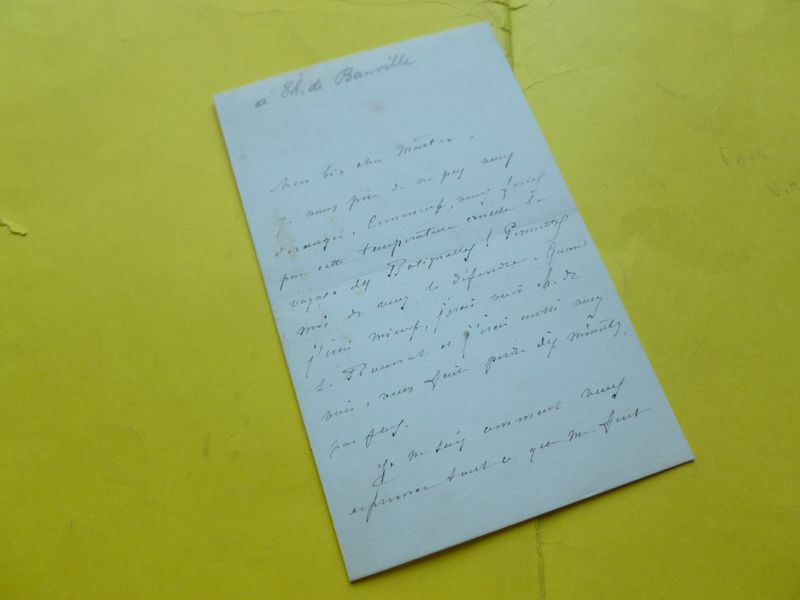 à Th. de Banville
Mon bien cher Maître,
je vous prie de ne pas vous
déranger. Comment, vous feriez
par cette température cruelle le
voyage des Batignolles! Permettez
moi de vous le défendre. Quand
j'irai mieux, j'irai voir M. de
et j'irai aussi vous
voir, vous faire perdre dix minutes,
pas plus.
Je ne sais comment vous
exprimer tout ce que me font